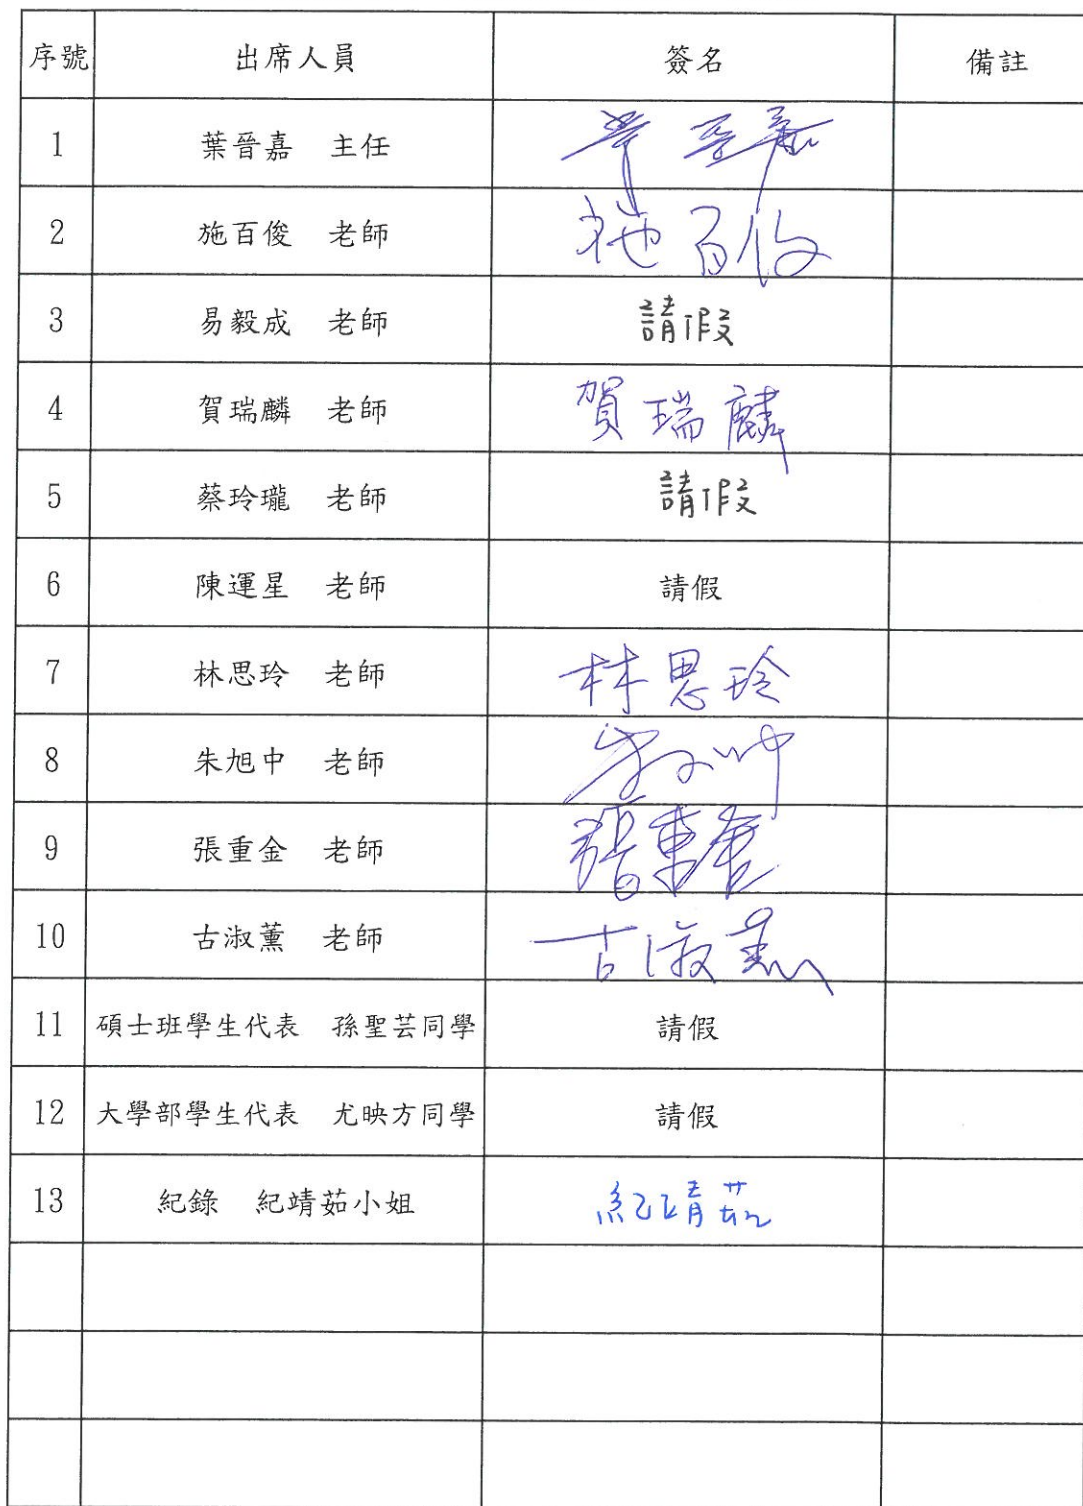 序號 出席人員 簽名 備註
1 葉晉嘉 主任 葉晉嘉
2 施百俊 老師 施百俊
3 易毅成 老師 請假
4 賀瑞麟 老師 賀瑞麟
5 蔡玲瓏 老師 請假
6 陳運星 老師 請假
7 林思玲 老師 林思玲
8 朱旭中 老師
9 張重金 老師 張重金
10 古淑薰 老師 古淑薰
11 碩士班學生代表 孫聖芸同學 請假
12 大學部學生代表 尤映方同學 請假
13 紀錄 紀靖茹小姐 紀靖茹